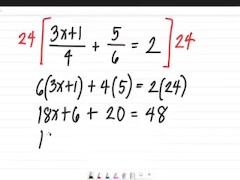 24[(3x+1)/4 + 5/6 = 2]24
6(3x+1) + 4(5) = 2(24)
18x+6 + 20 = 48
1